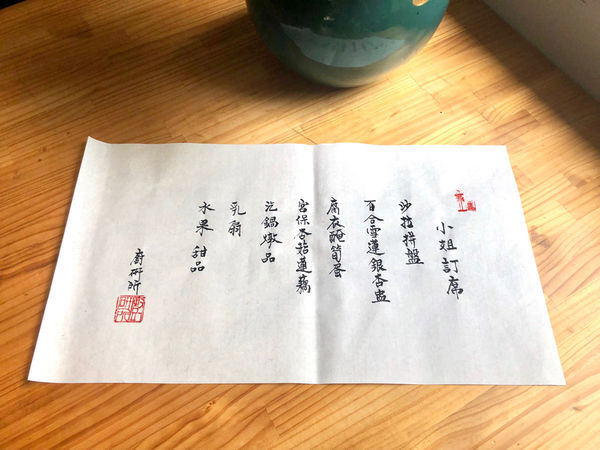 小姐訂席
沙拉拼盤
百合雪蓮銀杏盅
腐衣醃筍香
宮保杏菇蓮藕
汽鍋燉品
乳扇
水果 甜品
廚研所